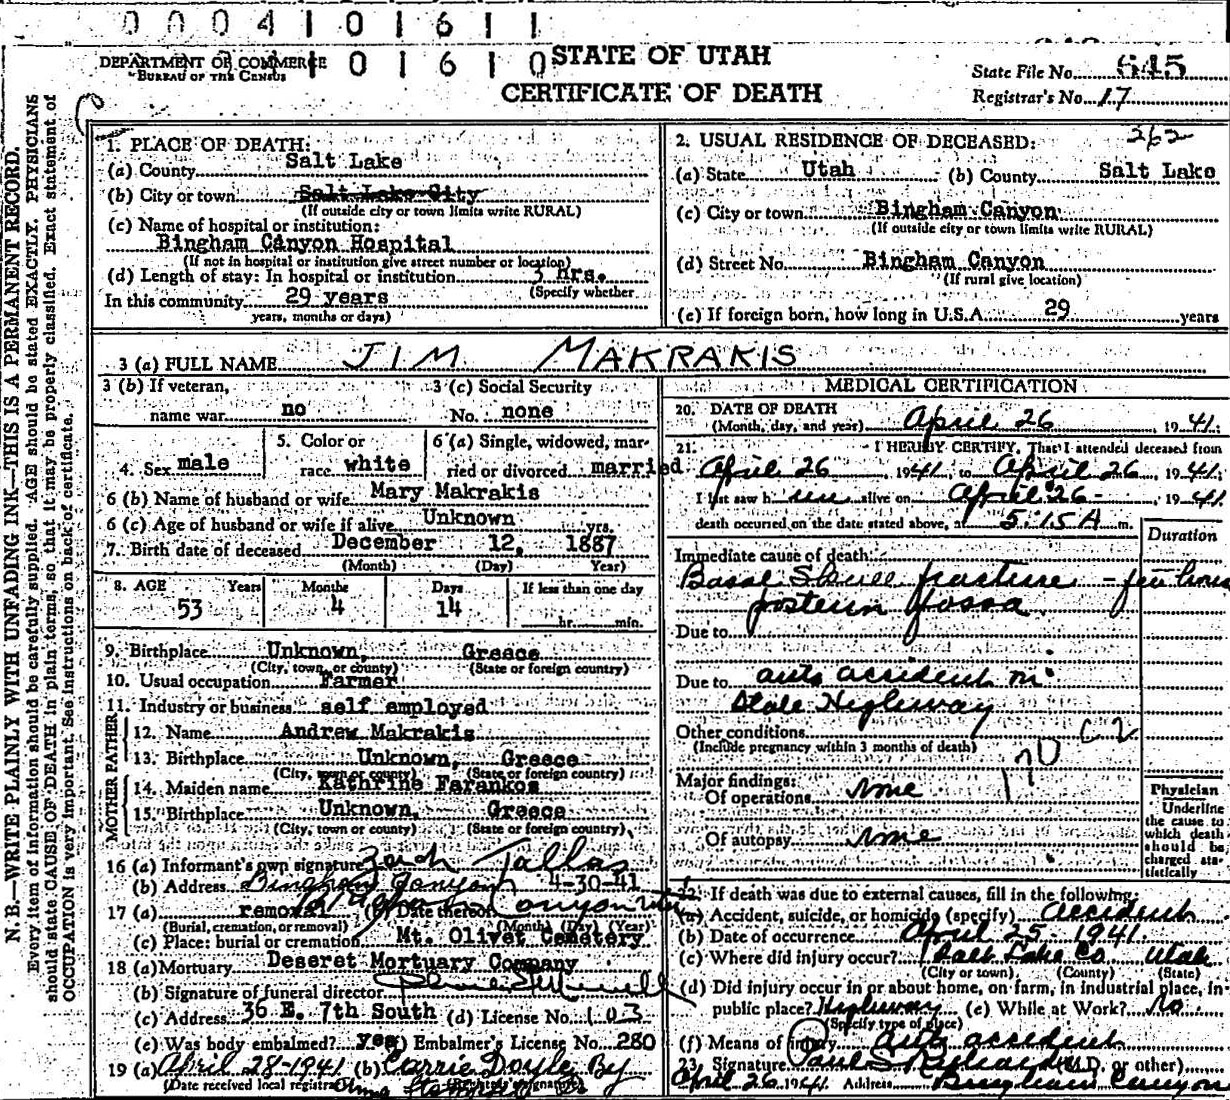 0 0 0 4 1 0 1 6 1 1
1 0 1 6 1 0
DEPARTMENT OF COMMERCE
BUREAU OF THE CENSUS
STATE OF UTAH
CERTIFICATE OF DEATH
State File No. 645
Registrar's No. 17
N. B.—WRITE PLAINLY WITH UNFADING INK—THIS IS A PERMANENT RECORD.
Every item of information should be carefully supplied. AGE should be stated EXACTLY. PHYSICIANS
should state CAUSE OF DEATH in plain terms, so that it may be properly classified. Exact statement of
OCCUPATION is very important. See instructions on back of certificate.
1. PLACE OF DEATH:
(a) County Salt Lake
(b) City or town Salt Lake City
(If outside city or town limits write RURAL)
(c) Name of hospital or institution:
Bingham Canyon Hospital
(If not in hospital or institution give street number or location)
(d) Length of stay: In hospital or institution 3 hrs.
(Specify whether
In this community 29 years
years, months or days)
262
2. USUAL RESIDENCE OF DECEASED:
(a) State Utah (b) County Salt Lake
(c) City or town Bingham Canyon
(If outside city or town limits write RURAL)
(d) Street No. Bingham Canyon
(If rural give location)
(e) If foreign born, how long in U.S.A. 29 years
3 (a) FULL NAME JIM MAKRAKIS
3 (b) If veteran, 3 (c) Social Security
name war no No. none
4. Sex male 5. Color or race white 6 (a) Single, widowed, married or divorced married
6 (b) Name of husband or wife Mary Makrakis
6 (c) Age of husband or wife if alive Unknown yrs.
7. Birth date of deceased December 12, 1887
(Month) (Day) Year)
8. AGE Years Months Days If less than one day
53 4 14 hr. min.
9. Birthplace Unknown, Greece
(City, town, or county) (State or foreign country)
10. Usual occupation Farmer
11. Industry or business self employed
FATHER
12. Name Andrew Makrakis
13. Birthplace Unknown, Greece
(City, town or county) (State or foreign country)
MOTHER
14. Maiden name Kathrine Farankos
15. Birthplace Unknown, Greece
(City, town or county) (State or foreign country)
16 (a) Informant's own signature Tallas
(b) Address Bingham Canyon 4-30-41
17 (a) removal (b) Date thereof
(Burial, cremation, or removal) (Month) (Day) (Year)
(c) Place: burial or cremation Mt. Olivet Cemetery
18 (a) Mortuary Deseret Mortuary Company
(b) Signature of funeral director
(c) Address 36 E. 7th South (d) License No. 103
(e) Was body embalmed? yes (f) Embalmer's License No. 280
19 (a) April 28-1941 (b) Carrie Doyle By
(Date received local registrar) (Registrar's signature)
MEDICAL CERTIFICATION
20. DATE OF DEATH
(Month, day, and year) April 26, 1941.
21. I HEREBY CERTIFY, That I attended deceased from
April 26, 1941, to April 26, 1941.
I last saw him alive on April 26 - 1941
death occurred on the date stated above, at 5:15 A m.
Duration
Immediate cause of death:
Basal Skull fracture - few hours
posterior fossa
Due to
Due to auto accident on
State Highway
Other conditions
(Include pregnancy within 3 months of death)
170 C2
Major findings:
Of operations none
Of autopsy none
Physician
Underline
the cause to
which death
should be
charged sta-
tistically
22. If death was due to external causes, fill in the following:
(a) Accident, suicide, or homicide (specify) accident
(b) Date of occurrence April 25 - 1941
(c) Where did injury occur? Salt Lake Co Utah
(City or town) (County) (State)
(d) Did injury occur in or about home, on farm, in industrial place, in
public place? Highway (e) While at Work? No
(Specify type of place)
(f) Means of injury auto accident
23. Signature Paul S. Richards (M.D. or other)
April 26 1941 Address Bingham Canyon